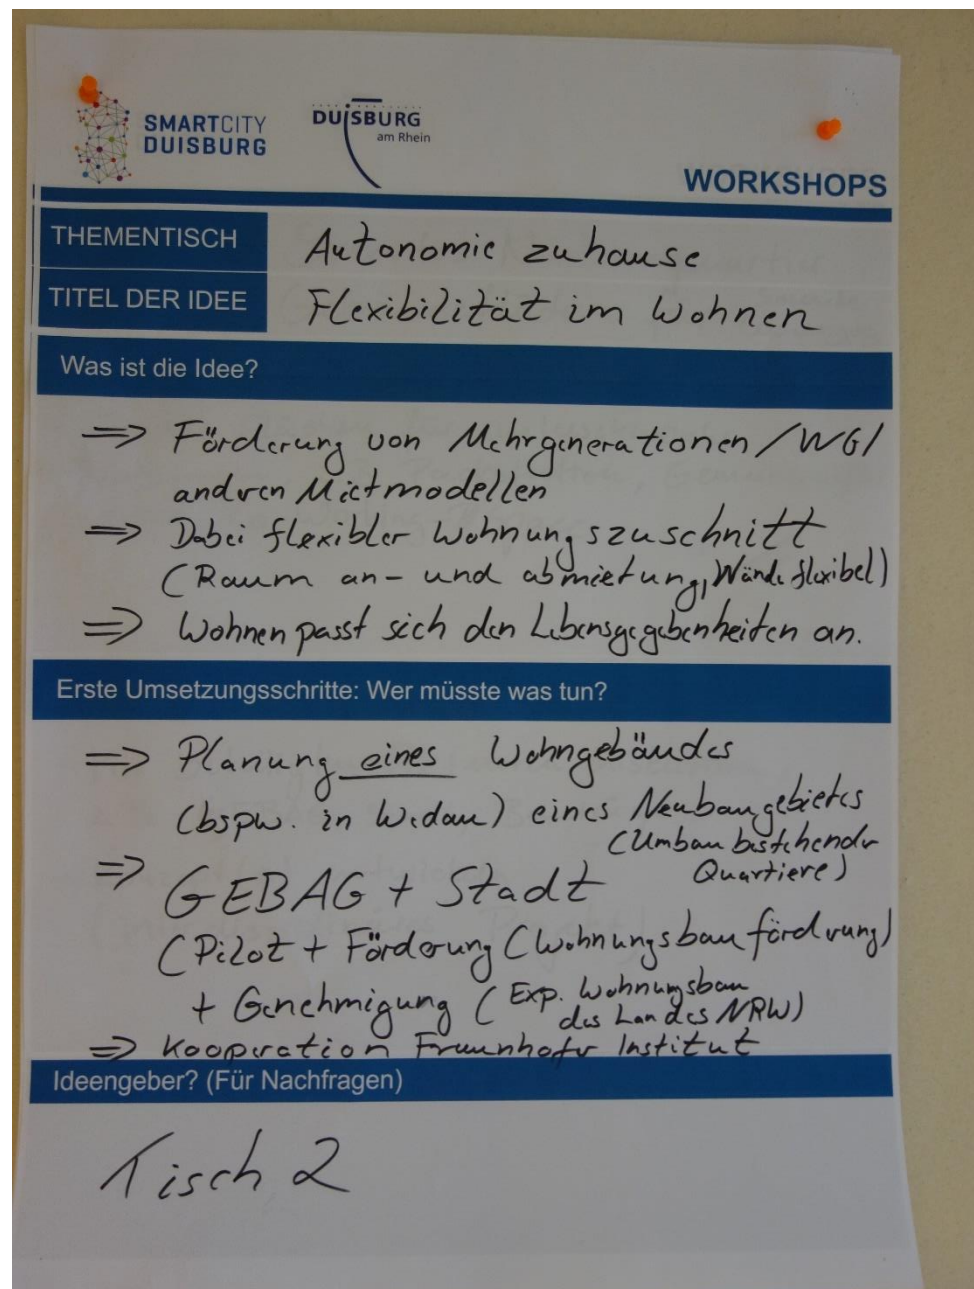 SMARTCITY
DUISBURG
DUISBURG
am Rhein
WORKSHOPS
THEMENTISCH
Autonomie zuhause
TITEL DER IDEE
Flexibilität im Wohnen
Was ist die Idee?
=> Förderung von Mehrgenerationen / WG /
andren Mietmodellen
=> Dabei flexibler Wohnungszuschnitt
(Raum an- und abmietung, Wände flexibel)
=> Wohnen passt sich den Lebensgegebenheiten an.
Erste Umsetzungsschritte: Wer müsste was tun?
=> Planung eines Wohngebäudes
(bspw. in Wedau) eines Neubaugebietes
(Umbau bestehender
Quartiere)
=> GEBAG + Stadt
(Pilot + Förderung (Wohnungsbauförderung)
+ Genehmigung (Exp. Wohnungsbau
des Landes NRW)
=> Kooperation Fraunhofer Institut
Ideengeber? (Für Nachfragen)
Tisch 2